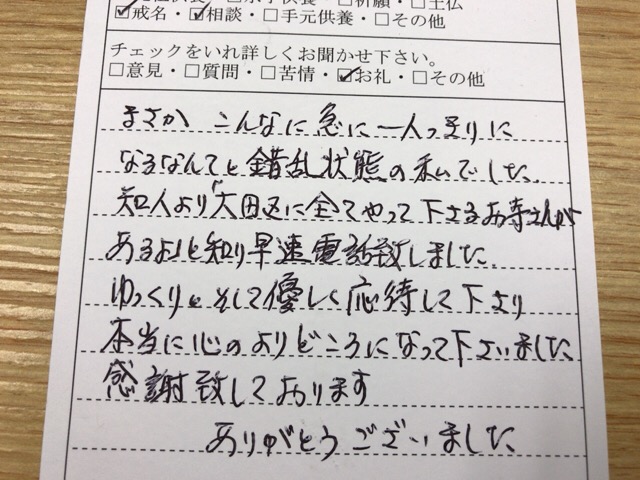 ☑戒名・☑相談・□手元供養・□その他
チェックをいれ詳しくお聞かせ下さい。
□意見・□質問・□苦情・☑お礼・□その他
まさか こんなに急に一人っきりに
なるなんてと錯乱状態の私でした。
知人より「大田区に全てやって下さるお寺さんが
あるよ」と知り早速電話致しました。
ゆっくりとそして優しく応待して下さり
本当に心のよりどころになって下さいました
感謝致しております
ありがとうございました